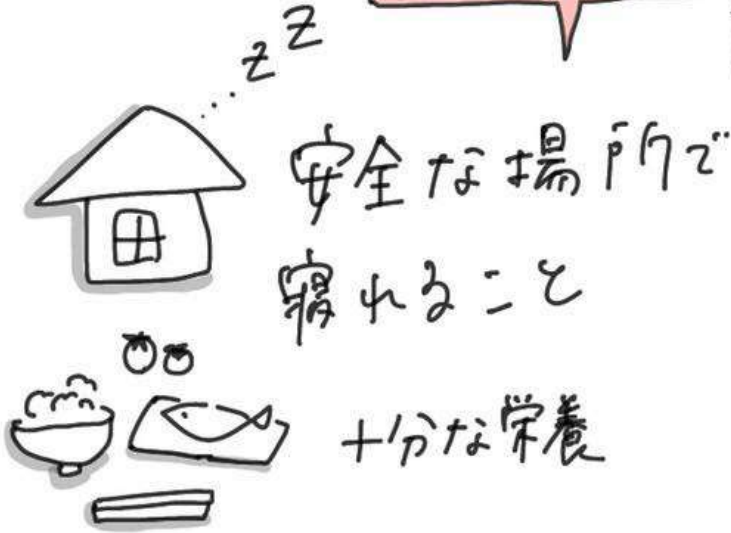 zz
安全な場所で
寝れること
十分な栄養